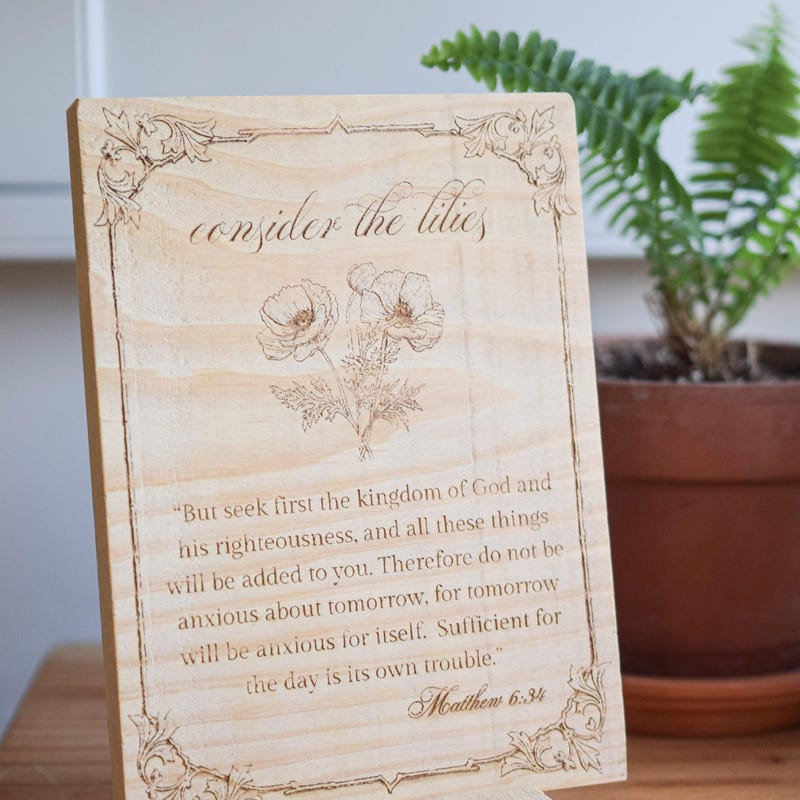 consider the lilies
“But seek first the kingdom of God and
his righteousness, and all these things
will be added to you. Therefore do not be
anxious about tomorrow, for tomorrow
will be anxious for itself. Sufficient for
the day is its own trouble.”
Matthew 6:34